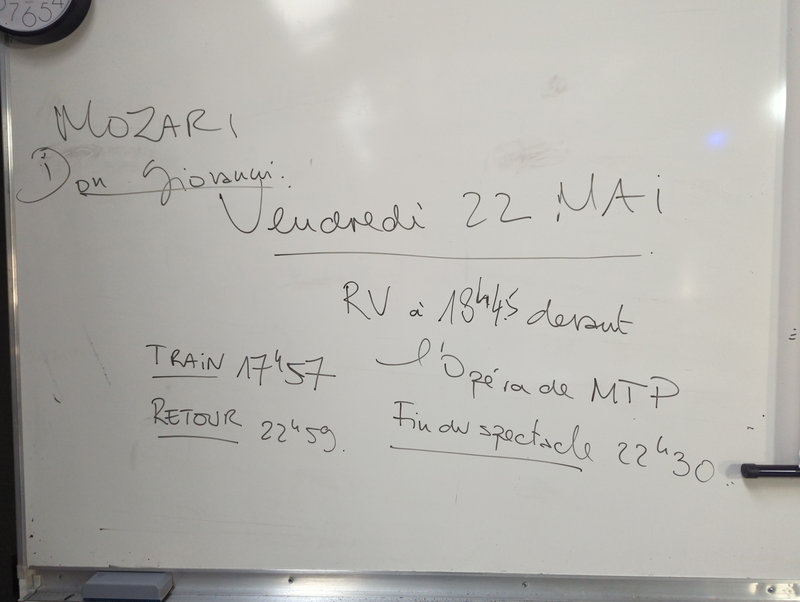 7654
MOZART
Don Giovanni.
Vendredi 22 MAI
RV à 18h45 devant
l'Opéra de MTP
TRAIN 17h57
RETOUR 22h59.
Fin du spectacle 22h30.